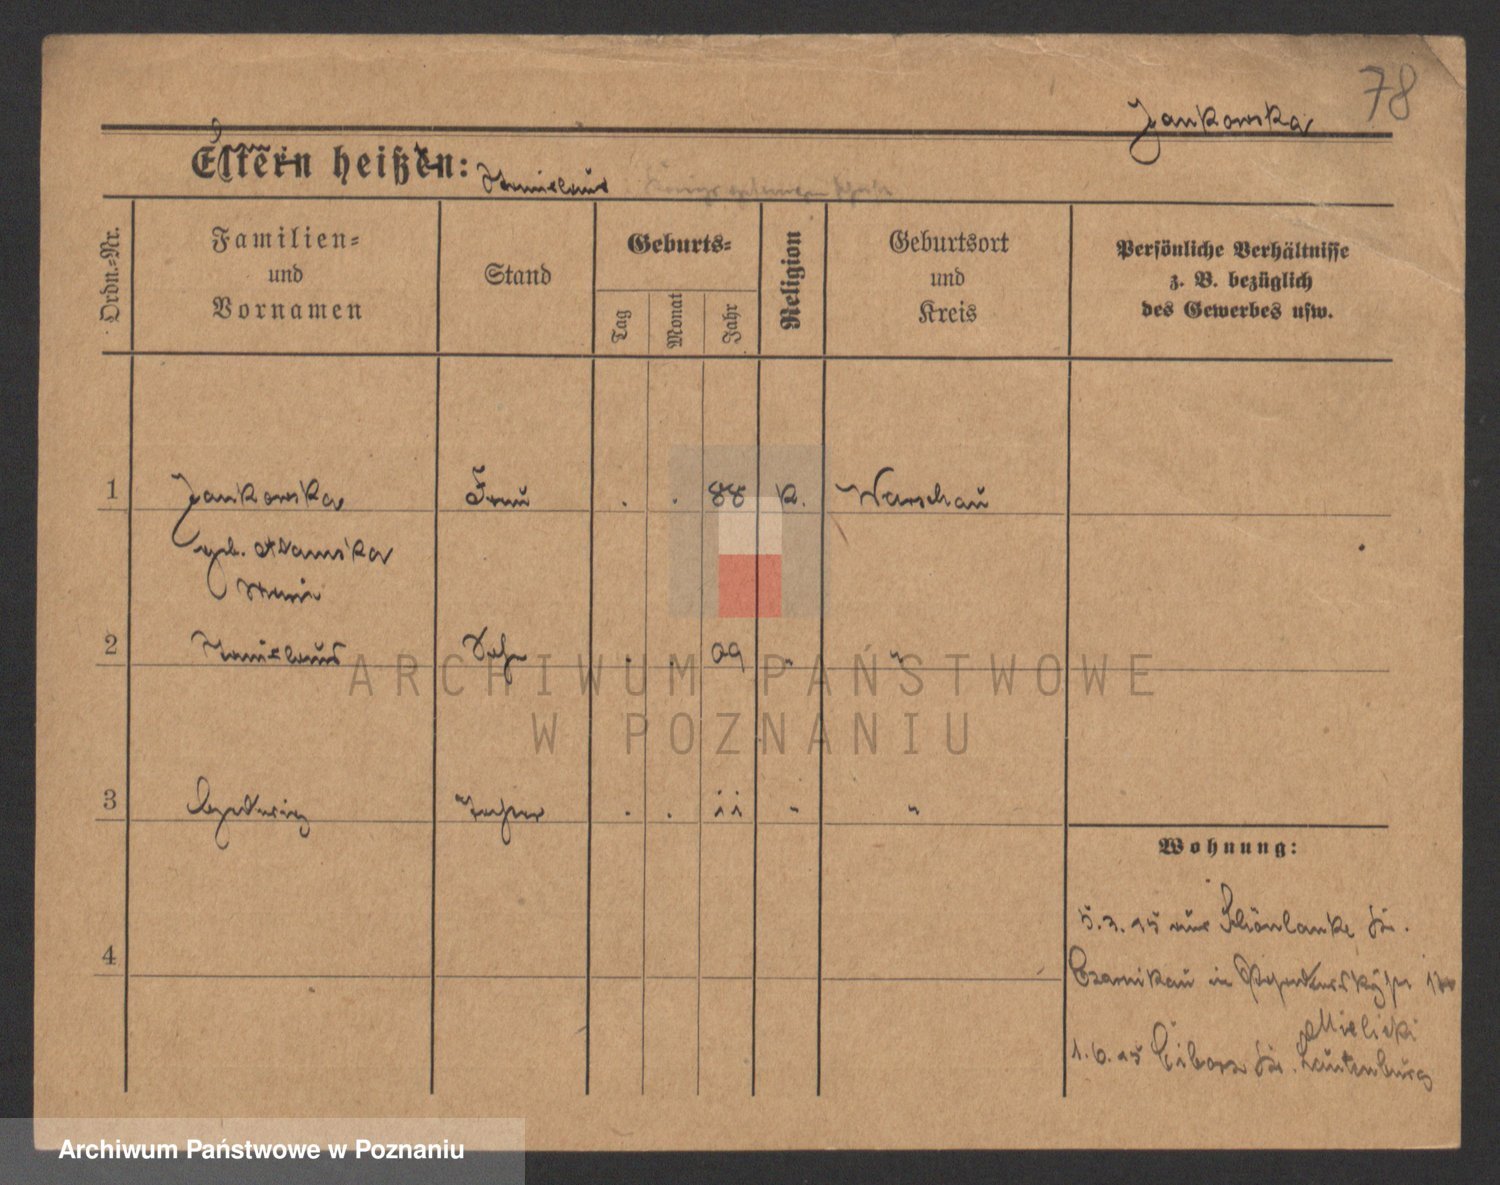 78
Jankowska
Eltern heißen:
Stanislaus
Ordn.-Nr.
Familien-
und
Vornamen
Stand
Geburts-
Tag
Monat
Jahr
Religion
Geburtsort
und
Kreis
Persönliche Verhältnisse
z. B. bezüglich
des Gewerbes usw.
1 Jankowska Frau . . 88 k. Warschau
geb. Adamska
Maria
2 Stanislaus Sohn . . 09 " "
3 Hedwig Tochter . . 11 " "
Wohnung:
5.3.15 aus Schönlanke Kr.
4
Czarnikau in
Mielicki
1.6.15 Ciborz Kr. Lautenburg
ARCHIWUM PAŃSTWOWE
W POZNANIU
Archiwum Państwowe w Poznaniu